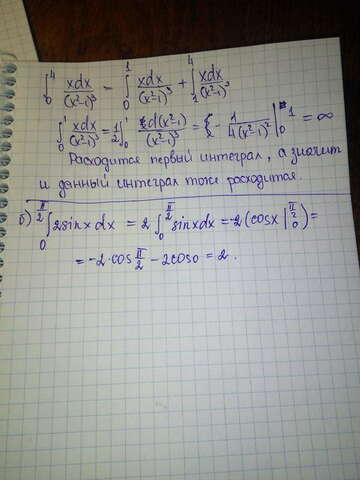 ∫₀⁴ xdx/(x²-1)³ = ∫₀¹ xdx/(x²-1)³ + ∫₁⁴ xdx/(x²-1)³
∫₀¹ xdx/(x²-1)³ = 1/2 ∫₀¹ d(x²-1)/(x²-1)³ = - 1/4(x²-1)² |₀¹ = ∞
Расходится первый интеграл, а значит
и данный интеграл тоже расходится.
б) ∫₀^(π/2) 2sinx dx = 2 ∫₀^(π/2) sinxdx = -2 (cosx |₀^(π/2)) =
= -2·cos π/2 - 2cos0 = 2.